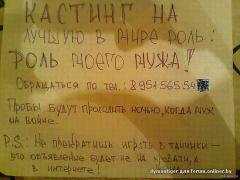 КАСТИНГ НА
ЛУЧШУЮ В МИРЕ РОЛЬ:
РОЛЬ МОЕГО МУЖА!
ОБРАЩАТЬСЯ ПО ТЕЛ.: 8951565 54
ПРОБЫ БУДУТ ПРОХОДИТЬ НОЧЬЮ, КОГДА МУЖ
НА ВОЙНЕ.
P.S.: НЕ ПРЕКРАТИШЬ ИГРАТЬ В ТАНЧИКИ –
ЭТО ОБЪЯВЛЕНИЕ БУДЕТ НЕ НА КРОВАТИ, А
В ИНТЕРНЕТЕ!
dymontiger для forum.onliner.by